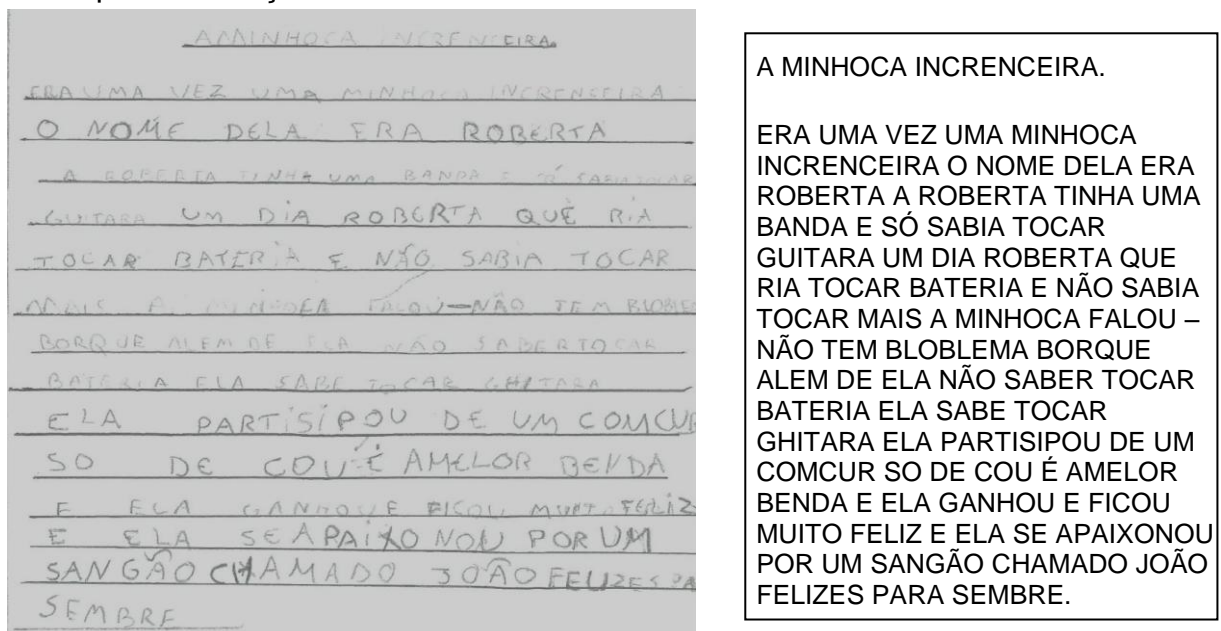 AMINHOCA INCRENCEIRA
ERA UMA VEZ UMA MINHOCA INCRENSEIRA
O NOME DELA ERA ROBERTA
A ROBERTA TINHA UMA BANDA E SÓ SABIA TOCAR
GUITARA UM DIA ROBERTA QUE RIA
TOCAR BATERIA E NÃO SABIA TOCAR
MAIS A MINHOCA FALOU—NÃO TEM BLOBLE
BORQUE ALEM DE ELA NÃO SABER TOCAR
BATERIA ELA SABE TOCAR GHITARA
ELA PARTISIPOU DE UM COMCUR
SO DE COU É AMELOR BENDA
E ELA GANHOU E FICOU MUITO FELIZ
E ELA SE APAIXO NOU POR UM
SANGÃO CHAMADO JOÃO FELIZES PA
SEMBRE
A MINHOCA INCRENCEIRA.
ERA UMA VEZ UMA MINHOCA
INCRENCEIRA O NOME DELA ERA
ROBERTA A ROBERTA TINHA UMA
BANDA E SÓ SABIA TOCAR
GUITARA UM DIA ROBERTA QUE
RIA TOCAR BATERIA E NÃO SABIA
TOCAR MAIS A MINHOCA FALOU –
NÃO TEM BLOBLEMA BORQUE
ALEM DE ELA NÃO SABER TOCAR
BATERIA ELA SABE TOCAR
GHITARA ELA PARTISIPOU DE UM
COMCUR SO DE COU É AMELOR
BENDA E ELA GANHOU E FICOU
MUITO FELIZ E ELA SE APAIXONOU
POR UM SANGÃO CHAMADO JOÃO
FELIZES PARA SEMBRE.